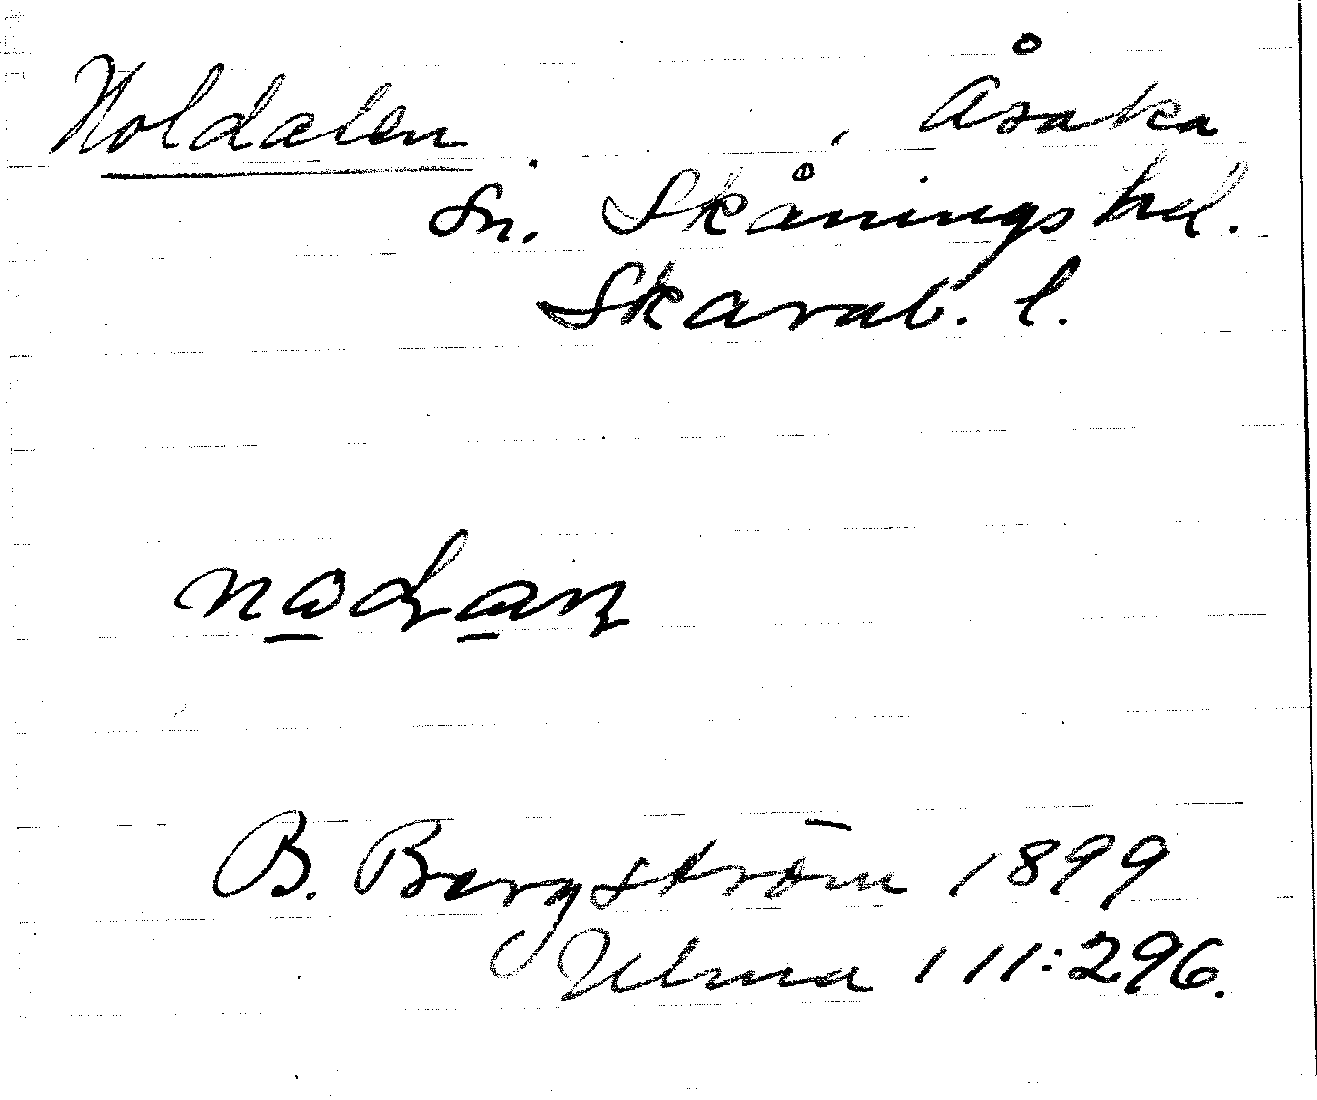 Noldalen , Åsaka
Sn. Skånings hd.
Skarab. l.
B. Bergström 1899
Ulma 111:296.